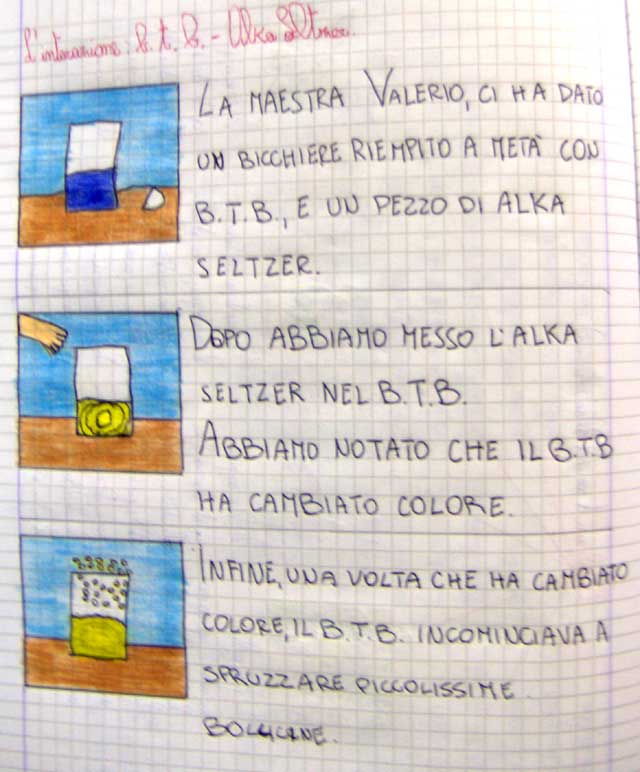 L'interazione: B.t.B.- Alka Seltzer.
LA MAESTRA VALERIO, CI HA DATO
UN BICCHIERE RIEMPITO A METÀ CON
B.T.B., E UN PEZZO DI ALKA
SELTZER.
DOPO ABBIAMO MESSO L'ALKA
SELTZER NEL B.T.B.
ABBIAMO NOTATO CHE IL B.T.B
HA CAMBIATO COLORE.
INFINE, UNA VOLTA CHE HA CAMBIATO
COLORE, IL B.T.B. INCOMINCIAVA A
SPRUZZARE PICCOLISSIME
BOLLICINE.